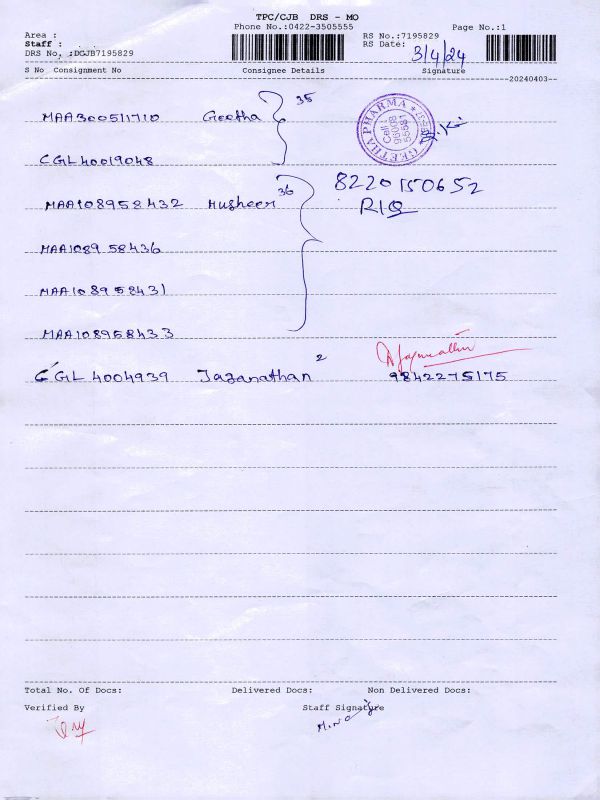 TPC/CJB DRS - MO
Phone No.:0422-3505555 Page No.:1
Area :
Staff : RS No.:7195829
DRS No, :DCJB7195829 RS Date: 3/4/24
S No Consignment No Consignee Details Signature
20240403
MAA300511710 Geetha 35
GEETHA PHARMA
Cell
CGL40019048
MAA108958432 Musheer 36 8220150652
MAA108958436
MAA108958431
MAA108958433
CGL 4004939 Jaganathan 2 9842275175
Total No. Of Docs: Delivered Docs: Non Delivered Docs:
Verified By Staff Signature